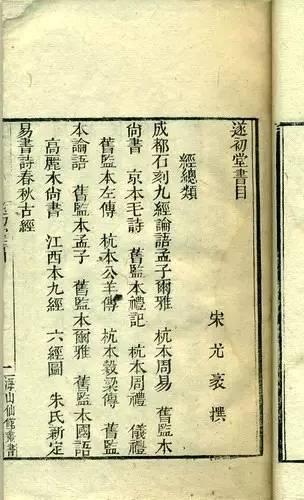 遂初堂書目
宋尤袤撰
經總類
成都石刻九經論語孟子爾雅 杭本周易 舊監本
尚書 京本毛詩 舊監本禮記 杭本周禮 儀禮
舊監本左傳 杭本公羊傳 杭本穀梁傳 舊監
本論語 舊監本孟子 舊監本爾雅 舊監本國語
高麗本尚書 江西本九經 六經圖 朱氏新定
易書詩春秋古經
一
海山仙館叢書